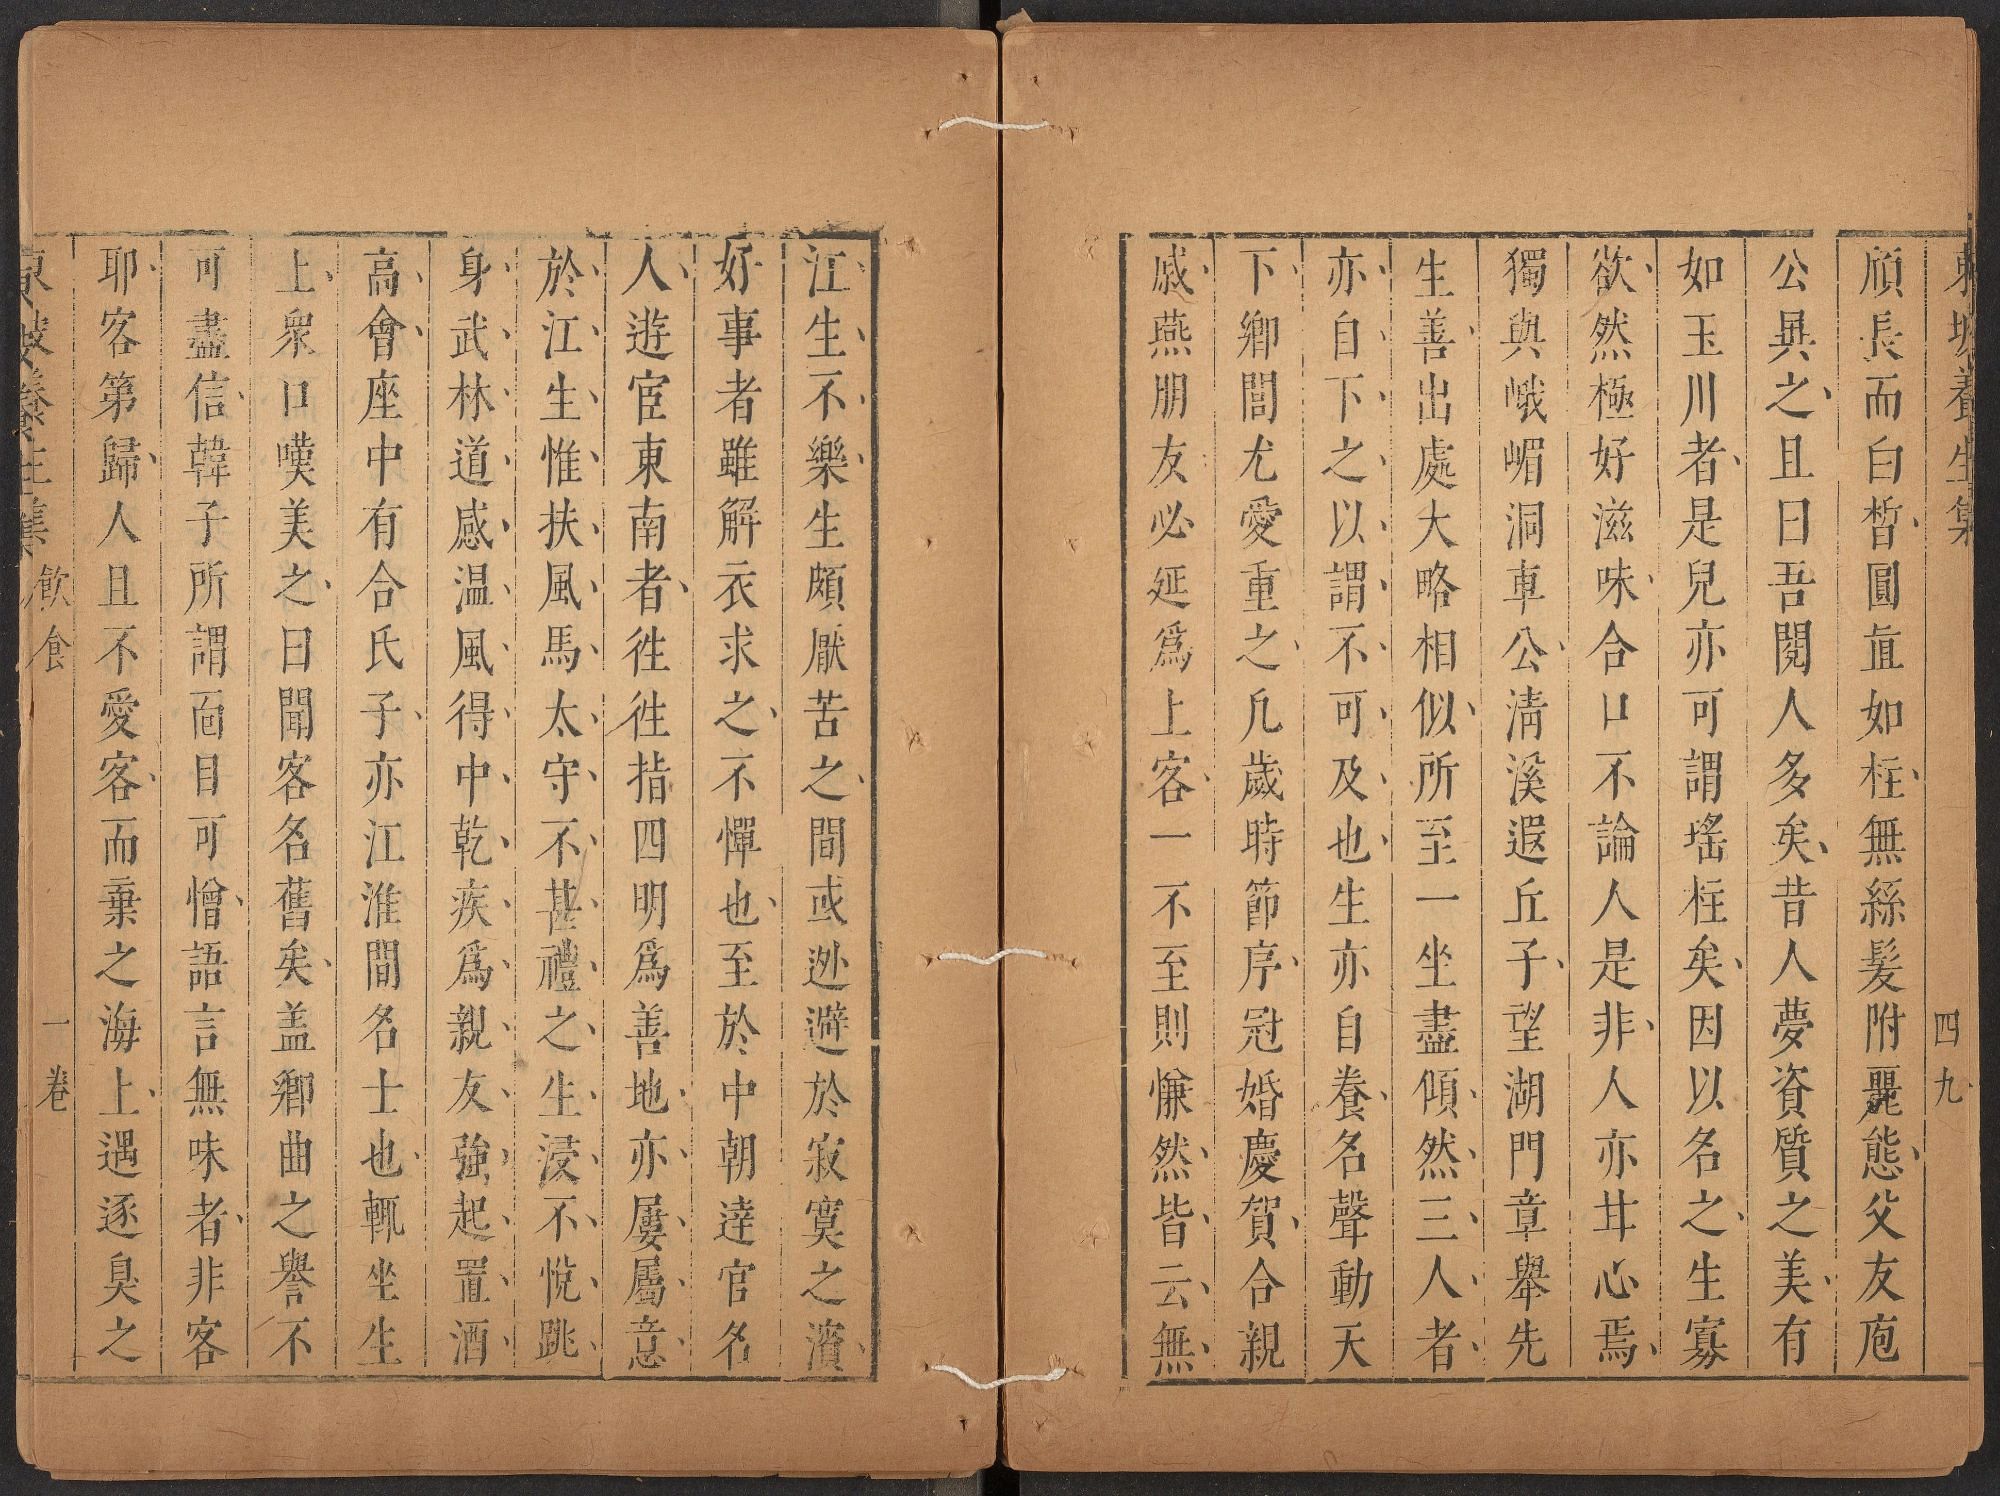 東坡養生集 四九
頎長而白晳圓直如柱無絲髮附麗態父友庖
公異之且曰吾閱人多矣昔人夢資質之美有
如玉川者是兒亦可謂瑤柱矣因以名之生寡
欲然極好滋味合口不論人是非人亦甘心焉
獨與峨嵋洞車公淸溪遐丘子望湖門章舉先
生善出處大略相似所至一坐盡傾然三人者
亦自下之以謂不可及也生亦自養名聲動天
下鄉閭尤愛重之凡歲時節序冠婚慶賀合親
戚燕朋友必延爲上客一不至則慊然皆云無
江生不樂生頗厭苦之間或逊避於寂寞之濱
好事者雖解衣求之不憚也至於中朝達官名
人遊宦東南者徃徃指四明爲善地亦屢屬意
於江生惟扶風馬太守不甚禮之生浸不悅跳
身武林道感温風得中乾疾爲親友強起置酒
高會座中有合氏子亦江淮間名士也輒坐生
上衆口嘆美之曰聞客名舊矣盖鄉曲之譽不
可盡信韓子所謂面目可憎語言無味者非客
耶客第歸人且不愛客而棄之海上遇逐臭之
東坡養生集 飲食 一卷